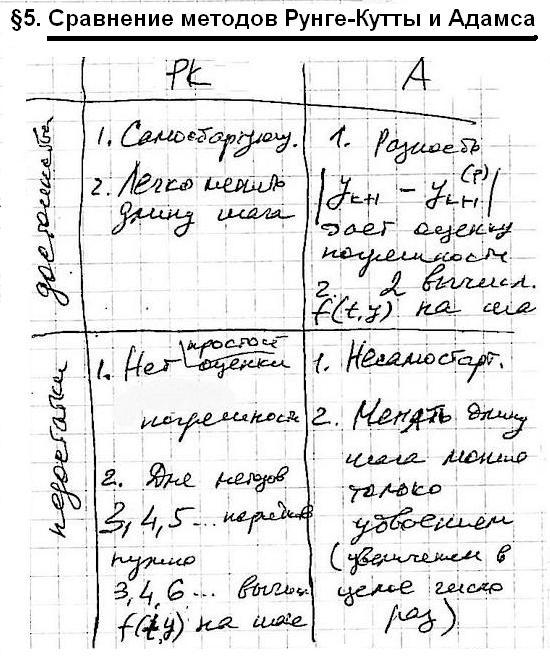 §5. Сравнение методов Рунге-Кутты и Адамса
РК
А
достоинства
1. Самостартующ.
2. Легко менять
длину шага
1. Разность
|yₖ₊₁ - yₖ₊₁⁽ᵖ⁾|
дает оценку
погрешности
2. 2 вычисл.
f(t,y) на шаг
недостатки
1. Нет простой
оценки
погрешности
2. Для методов
3, 4, 5 ... порядков
нужно
3, 4, 6 ... вычисл
f(t,y) на шаге
1. Несамостарт.
2. Менять длину
шага можно
только
удвоением
(увеличением в
целое число
раз)